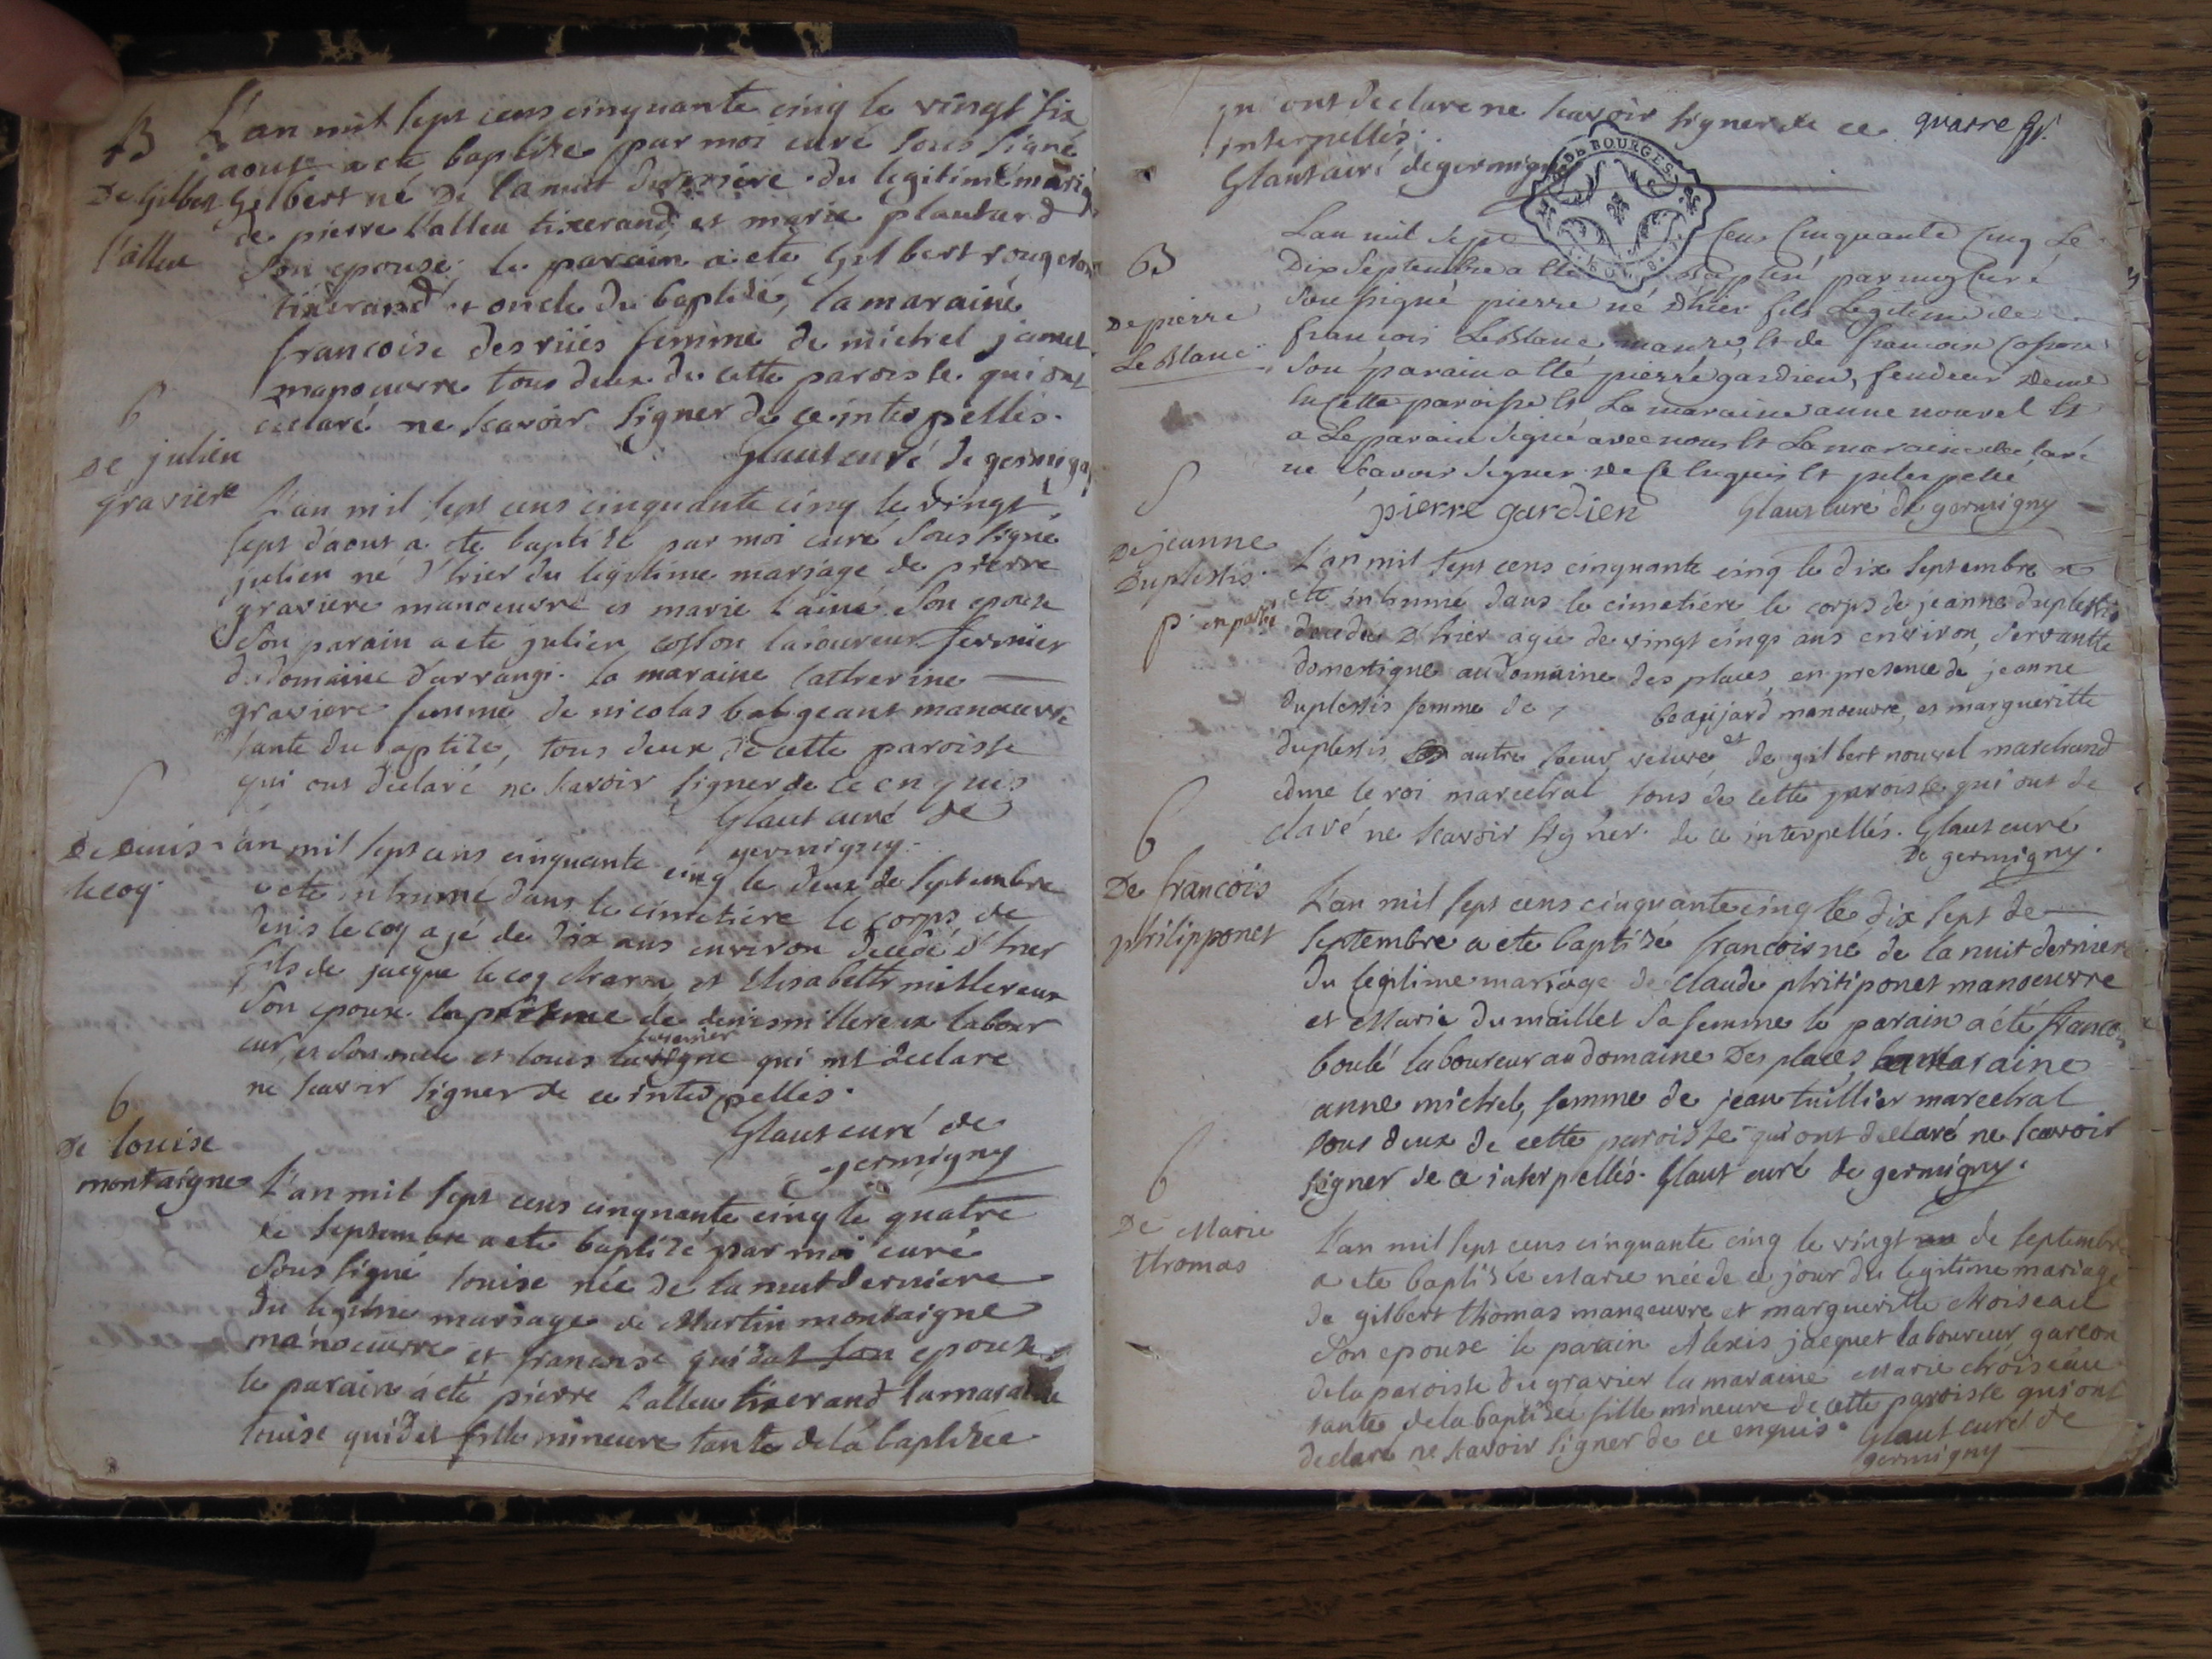 B L'an mil sept cens cinquante cinq le vingt six
aoust a ete baptize par moi curé sous signé
De Gilbert Gilbert né De la nuit derniere du legitime mariage
de pierre Lalleu tixerand et marie plautard
l'alleu son epouse; le parain a ete Gilbert rougeron
tixerand et oncle du baptisé, la maraine
francoise des rües femme de michel jamet
manoeuvre tous deux de cette paroisse qui ont
declaré ne scavoir signer de ce interpellés.
Glaut curé de germigny
b
De julien
graviere
L'an mil sept cens cinquante cinq le vingt
sept d'aout a ete baptizé par moi curé sous signé
julien né d'hier du legitime mariage de pierre
graviere manoeuvre et marie lainé son epouse
son parain a ete julien cosson laboureur fermier
du domaine d'arrangi. la maraine Catherine
graviere femme de nicolas balgeant manoeuvre
tante du baptizé, tous deux de cette paroisse
qui ont declaré ne scavoir signer de ce enquis
Glaut curé de
germigny.
S
De Denis
lecoq.
L'an mil sept cens cinquante cinq le deux de septembre
a ete inhumé dans le cimetiere le corps de
denis le coq agé de dix ans environ decedé d'hier
fils de jacque le coq charon et Elisabeth millereux
son epouse en de denis millereux labour
eur, et son oncle et louis qui ont declare
ne scavoir signer de ce interpelles.
Glaut curé de
germigny
b
de louise
montaigne
L'an mil sept cens cinquante cinq le quatre
de septembre a ete baptizé par moi curé
sous signé louise née de la nuit derniere
du legitime mariage de Martin montaigne
manoeuvre et francoise guidat son epouse
le parain a été pierre Lalleu tixerand la maraine
louise guidat fille mineure tante de la baptizée
qui ont declare ne scavoir signer de ce quarre
interpellés.
Glaut curé de germigny
DE BOURGES
L'an mil sept Cens Cinquante Cinq Le
B
Dix Septembre a été Baptisé par moy Curé
De pierre
Le Blanc
Soussigné pierre né d'hier fils Legitime de
francois LeBlanc et de francoise
Son parain a été pierre gardien, fendeur
en cette paroisse et La maraine anne nouvel et
a Le parain Signé avec nous et La maraine declaré
ne Scavoir Signer de Ce enquis et interpellé
pierre gardien Glaut curé de germigny
S
De jeanne
Duplessis.
p. en partie
L'an mil sept cens cinquante cinq le dix septembre a
ete inhumé dans le cimetiere le corps de jeanne duplessis
decedée d'hier agée de vingt cinq ans environ, servante
domestique au domaine des places, en presence de jeanne
duplessis femme de beaujard manoeuvre, et margueritte
duplessis autre soeur veuve de gilbert nouvel marchand et
edme le roi marechal tous de cette paroisse qui ont de
claré ne scavoir signer de ce interpellés. Glaut curé
De germigny.
b
De francois
philipponet
L'an mil sept cens cinquante cinq le dix sept de
septembre a ete baptizé francois né de la nuit derniere
du legitime mariage de claude philiponet manoeuvre
et Marie dumaillet sa femme le parain a été francois
boulé laboureur au domaine Des places la maraine
anne michel, femme de jean tuillier marechal
tous deux de cette paroisse qui ont declaré ne scavoir
signer de ce interpellés. Glaut curé de germigny.
b
De Marie
thomas
L'an mil sept cens cinquante cinq le vingt de septembre
a ete baptizée Marie née de ce jour du legitime mariage
de gilbert thomas manoeuvre et margueritte choiseau
son epouse le parain Alexis jacquet laboureur garcon
de la paroisse du gravier la maraine Marie choiseau
tante de la baptizée fille mineure de cette paroisse qui ont
declaré ne scavoir signer de ce enquis. Glaut curé de
germigny